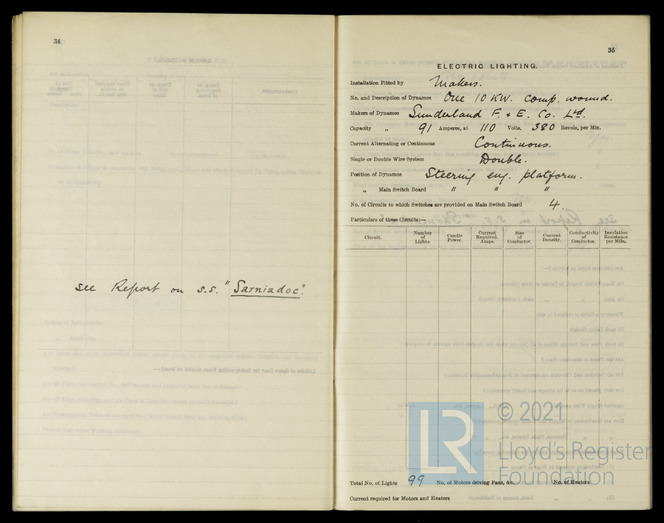 34
see Report on s.s. "Sarniadoc".
35
ELECTRIC LIGHTING.
Installation Fitted by Makers.
No. and Description of Dynamos One 10 KW. comp. wound.
Makers of Dynamos Sunderland F. & E. Co. Ltd.
Capacity „ 91 Amperes, at 110 Volts, 380 Revols. per Min.
Current Alternating or Continuous Continuous.
Single or Double Wire System Double.
Position of Dynamos Steering eng. platform.
„ Main Switch Board " " "
No. of Circuits to which Switches are provided on Main Switch Board 4
Particulars of these Circuits:—
Circuit. Number of Lights. Candle Power. Current Required. Amps. Size of Conductor. Current Density. Conductivity of Conductor. Insulation Resistance per Mile.
Total No. of Lights 99 No. of Motors driving Fans, &c. No. of Heaters
Current required for Motors and Heaters
LR © 2021
Lloyd's Register
Foundation